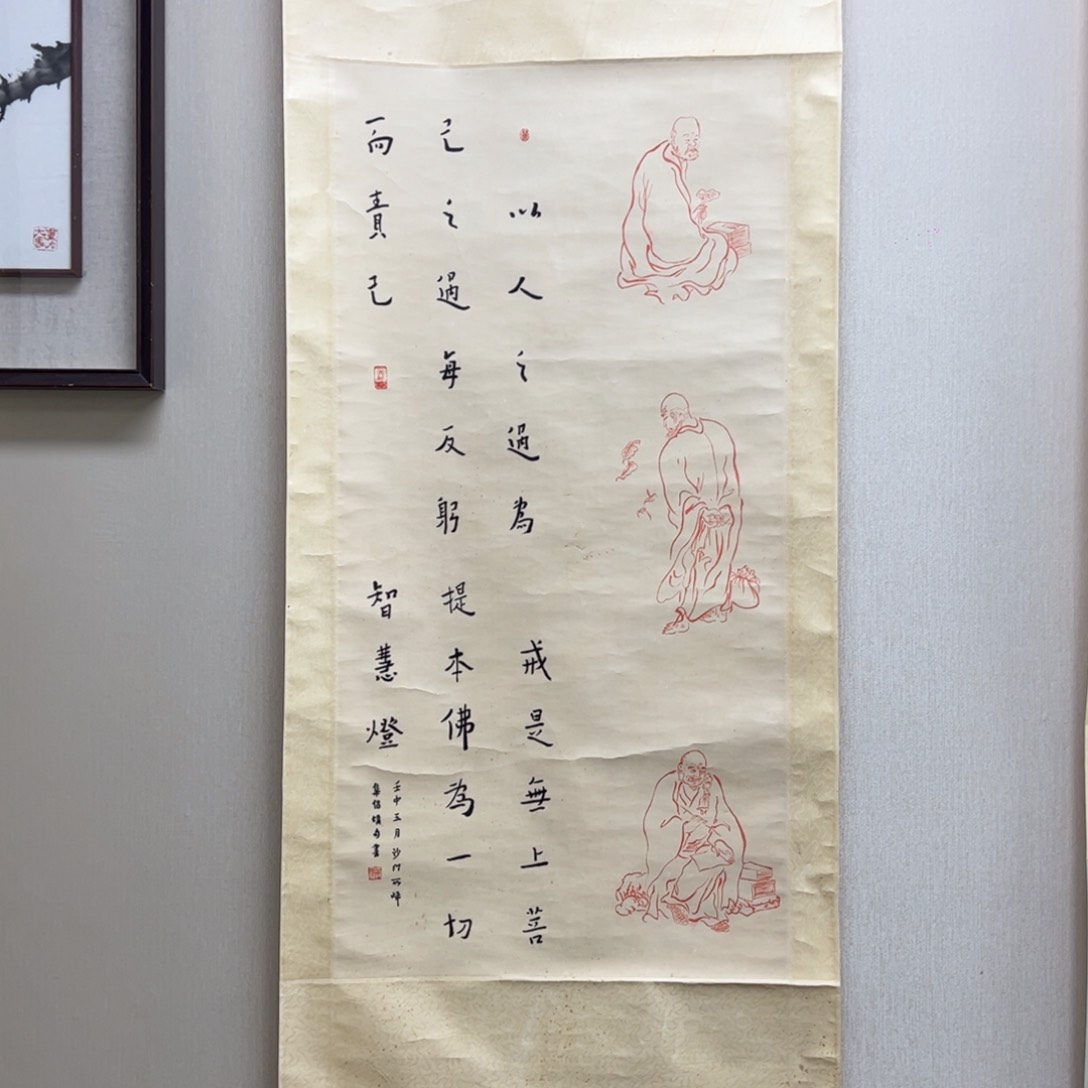 以人之過為
己之過每反躬
而責己
戒是無上菩
提本佛為一切
智慧燈
壬申 月沙門
集 句書